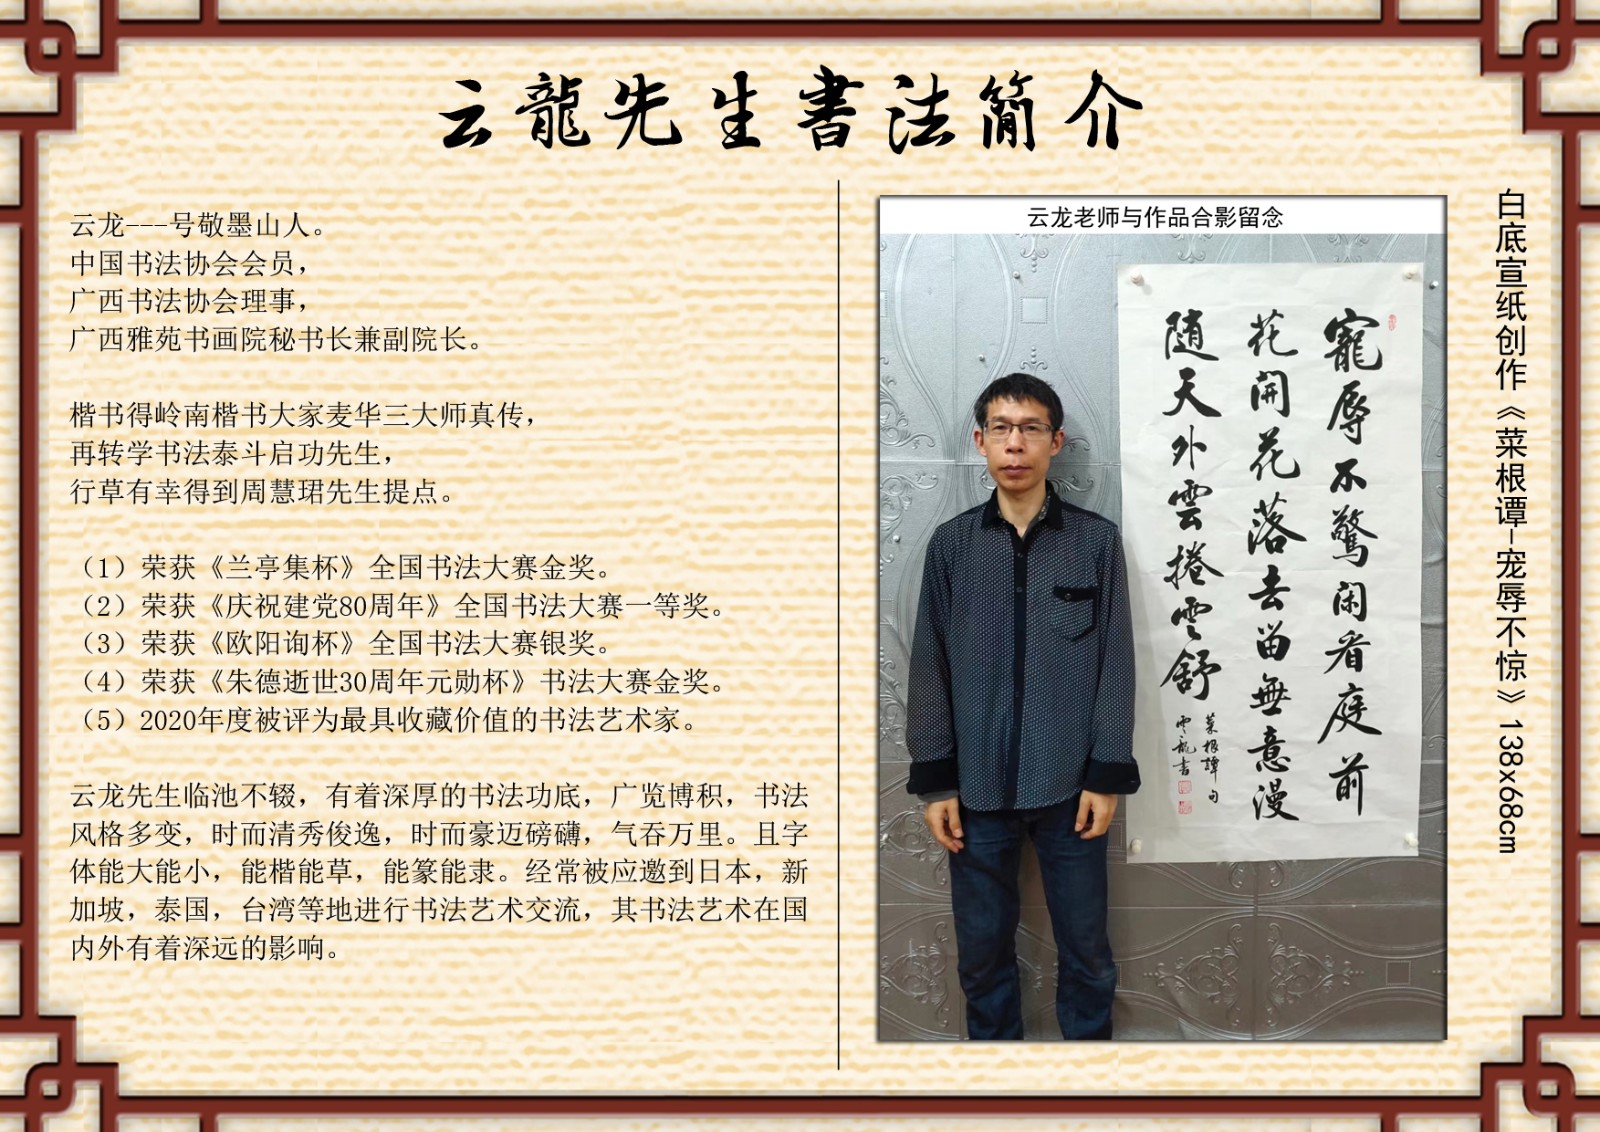 云龍先生書法簡介
云龙---号敬墨山人。
中国书法协会会员，
广西书法协会理事，
广西雅苑书画院秘书长兼副院长。
楷书得岭南楷书大家麦华三大师真传，
再转学书法泰斗启功先生，
行草有幸得到周慧珺先生提点。
（1）荣获《兰亭集杯》全国书法大赛金奖。
（2）荣获《庆祝建党80周年》全国书法大赛一等奖。
（3）荣获《欧阳询杯》全国书法大赛银奖。
（4）荣获《朱德逝世30周年元勋杯》书法大赛金奖。
（5）2020年度被评为最具收藏价值的书法艺术家。
云龙先生临池不辍，有着深厚的书法功底，广览博积，书法
风格多变，时而清秀俊逸，时而豪迈磅礴，气吞万里。且字
体能大能小，能楷能草，能篆能隶。经常被应邀到日本，新
加坡，泰国，台湾等地进行书法艺术交流，其书法艺术在国
内外有着深远的影响。
云龙老师与作品合影留念
寵辱不驚閑看庭前
花開花落去留無意漫
随天外雲捲雲舒
菜根譚句
雲龍書
白底宣纸创作《菜根谭-宠辱不惊》138x68cm